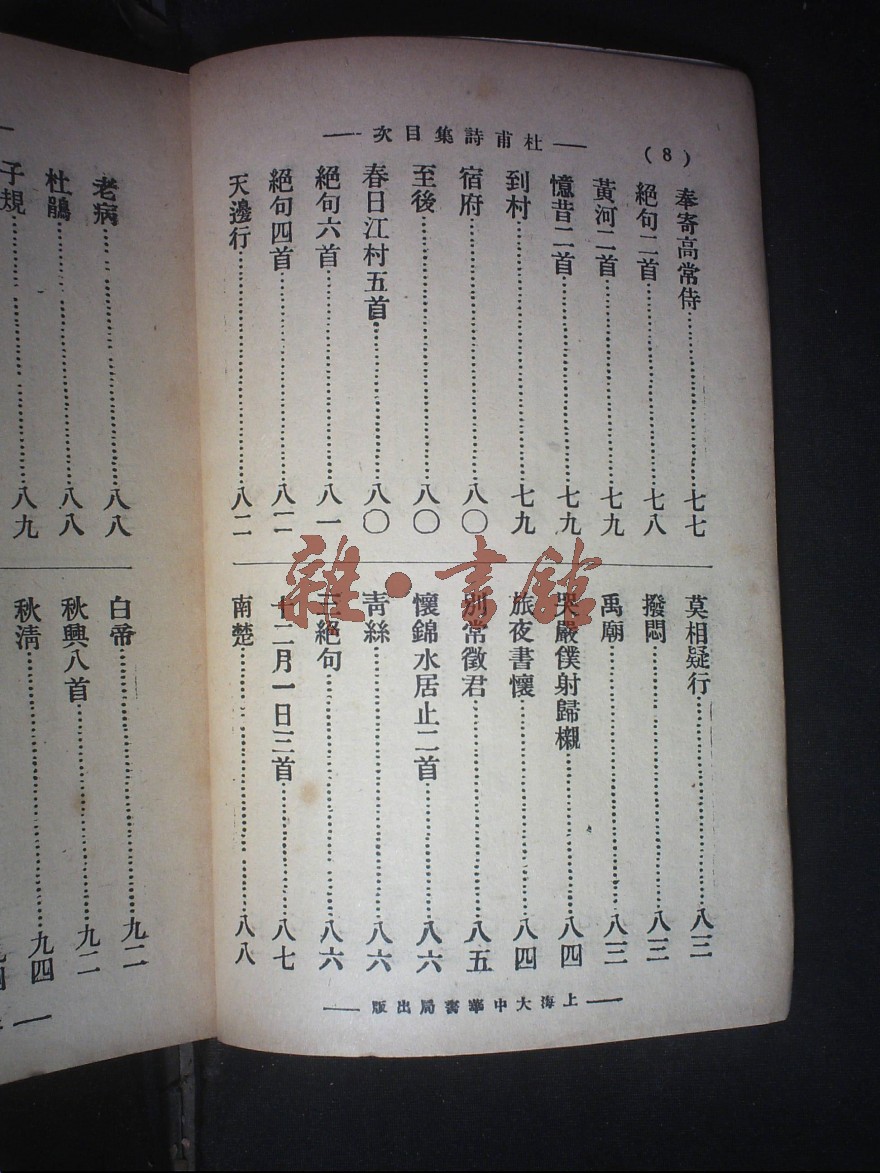 (8)
杜甫詩集目次
奉寄高常侍……七七
絕句二首……七八
黃河二首……七九
憶昔二首……七九
到村……七九
宿府……八〇
至後……八〇
春日江村五首……八〇
絕句六首……八一
絕句四首……八二
天邊行……八二
莫相疑行……八三
撥悶……八三
禹廟……八三
哭嚴僕射歸櫬……八四
旅夜書懷……八四
別常徵君……八五
懷錦水居止二首……八六
靑絲……八六
三絕句……八六
十二月一日三首……八七
南楚……八八
上海大中華書局出版
老病……八八
杜鵑……八八
子規……八九
白帝……九二
秋興八首……九二
秋淸……九四
雜·書館